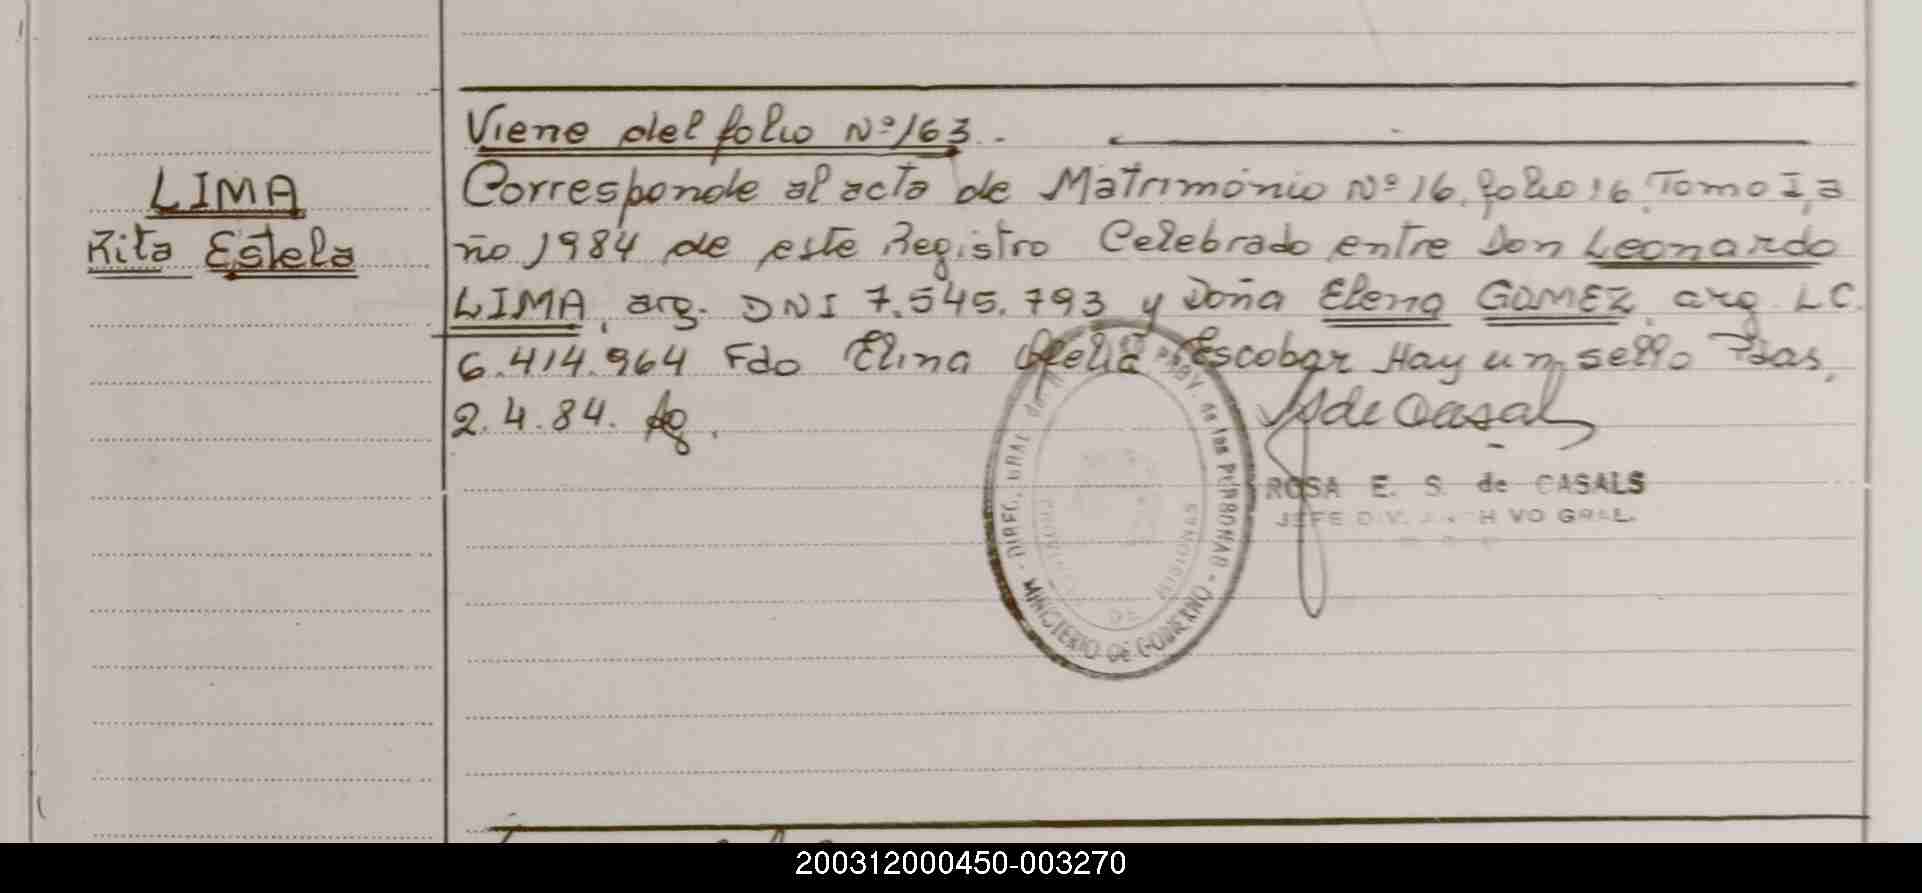 Viene del folio Nº 163.
LIMA
Rita Estela
Corresponde al acta de Matrimónio Nº 16, folio 16, Tomo I, a
ño 1984 de este Registro Celebrado entre Don Leonardo
LIMA, arg. DNI 7.545.793 y Doña Elena GOMEZ, arg LC.
6.414.964 Fdo Elina Ofelia Escobar Hay un sello Pdas,
2.4.84.
DIREC. GRAL del PROV. de las PERSONAS - MINISTERIO DE GOBIERNO -
DE MISIONES
S de Casals
ROSA E. S. de CASALS
JEFE DIV. ARCHIVO GRAL.
200312000450-003270